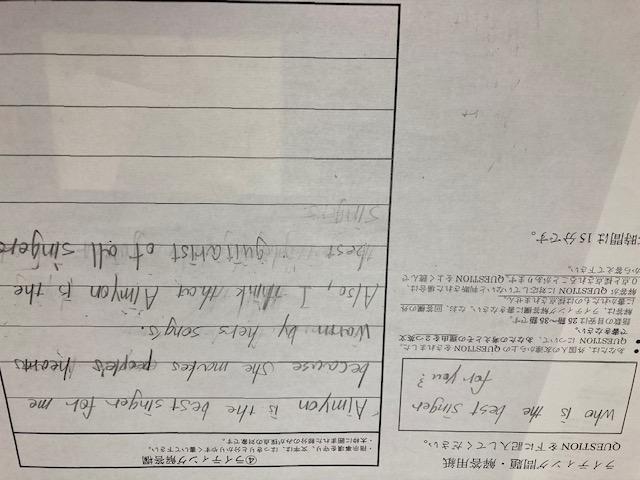 ライティング問題・解答用紙
QUESTION を下に記入してください。
Who is the best singer
for you?
● あなたは、外国人の友達から上の QUESTION をされました。
● QUESTION について、あなたの考えとその理由を2つ英文
で書きなさい。
● 語数の目安は25語~35語です。
● 解答は、ライティング解答欄に書きなさい。なお、回答欄の外
に書かれたものは採点されません。
解答が QUESTION に対応していないと判断された場合は、
0点と採点されることがあります。QUESTION をよく読んで
から答えて下さい。
時間は15分です。
④ライティング解答欄
・指示事項を守り、文字は、はっきりと分かりやすく書いて下さい。
・太枠に囲まれた部分のみが採点の対象です。
Aimyon is the best singer for me
because she makes people's hearts
warm by hers songs.
Also, I think that Aimyon is the
best guitarist of all singers
singers.